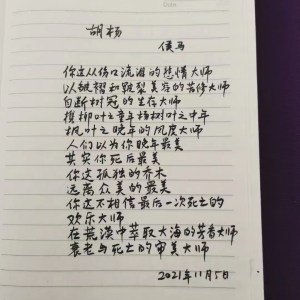 胡杨
侯马
你这从伤口流泪的悲情大师
以皱褶和皴裂美容的苦修大师
自断树冠的生存大师
槟榔叶之童年杨树叶之中年
枫叶之晚年的风度大师
人们以为你晚年最美
其实你死后最美
你这孤独的乔木
远离众美的最美
你这不相信最后一次死亡的
欢乐大师
在荒漠中萃取大海的芳香大师
衰老与死亡的审美大师
2021年11月5日